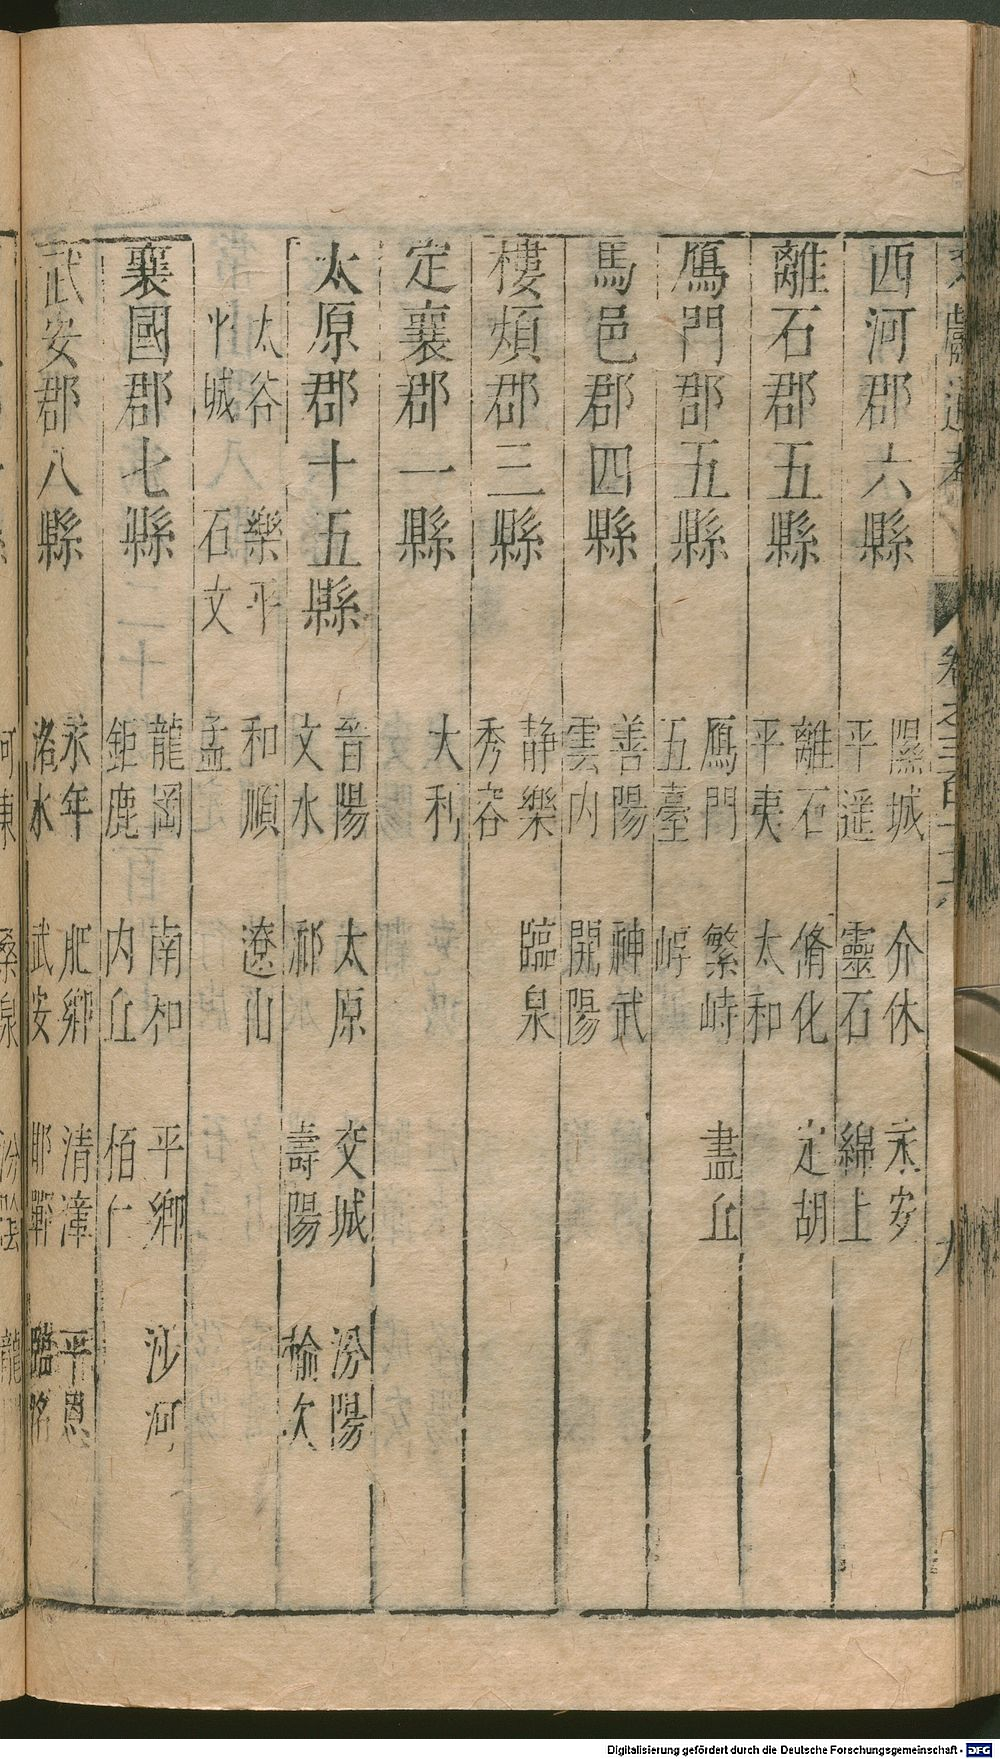 西河郡六縣
隰城 介休 永安
平遥 靈石 綿上
離石郡五縣
離石 脩化 定胡
平夷 太和
鴈門郡五縣
鴈門 繁峙
五臺 崞
馬邑郡四縣
善陽 神武
雲内 開陽
樓煩郡三縣
静樂 臨泉
秀容
定襄郡一縣
大利
太原郡十五縣
晉陽 太原 交城 汾陽
文水 祁 壽陽 榆次
太谷 樂平 和順 遼山
石文 盂
襄國郡七縣
龍岡 南和 平鄉 沙河
鉅鹿 内丘 栢仁
武安郡八縣
永年 肥鄉 清漳 平恩
洺水 武安 邯鄲 臨洺
Digitalisierung gefördert durch die Deutsche Forschungsgemeinschaft - DFG